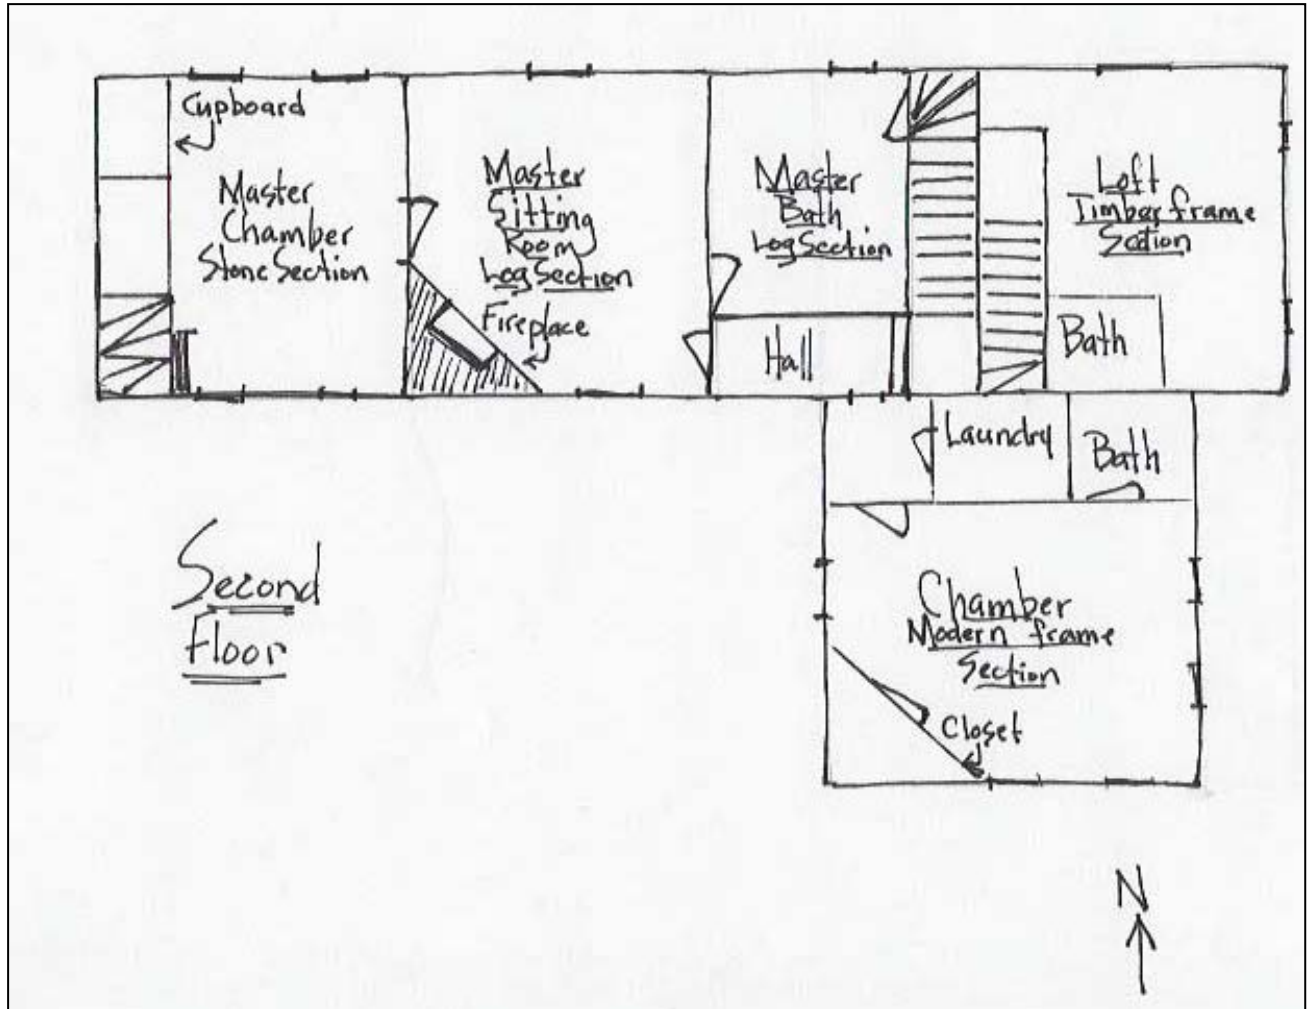 Cupboard
Master
Chamber
Stone Section
Master
Sitting
Room
Log Section
Fireplace
Master
Bath
Log Section
Hall
Loft
Timber frame
Section
Bath
Laundry
Bath
Second
Floor
Chamber
Modern frame
Section
Closet
N